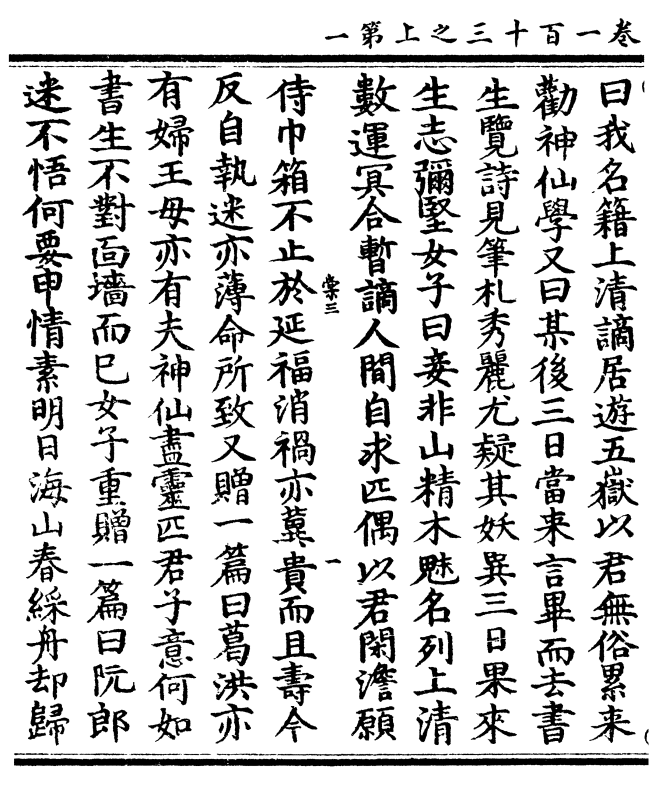 卷一百十三之上第一
曰我名籍上清謫居遊五嶽以君無俗累来
勸神仙學又曰某後三日當来言畢而去書
生覽詩見筆札秀麗尤疑其妖異三日果來
生志彌堅女子曰妾非山精木魅名列上清
數運冥合暫謫人間自求匹偶以君閑澹願
棠三
一
侍巾箱不止於延福消禍亦冀貴而且壽今
反自執迷亦薄命所致又贈一篇曰葛洪亦
有婦王母亦有夫神仙盡靈匹君子意何如
書生不對面墻而已女子重贈一篇曰阮郎
迷不悟何要申情素明日海山春綵舟却歸